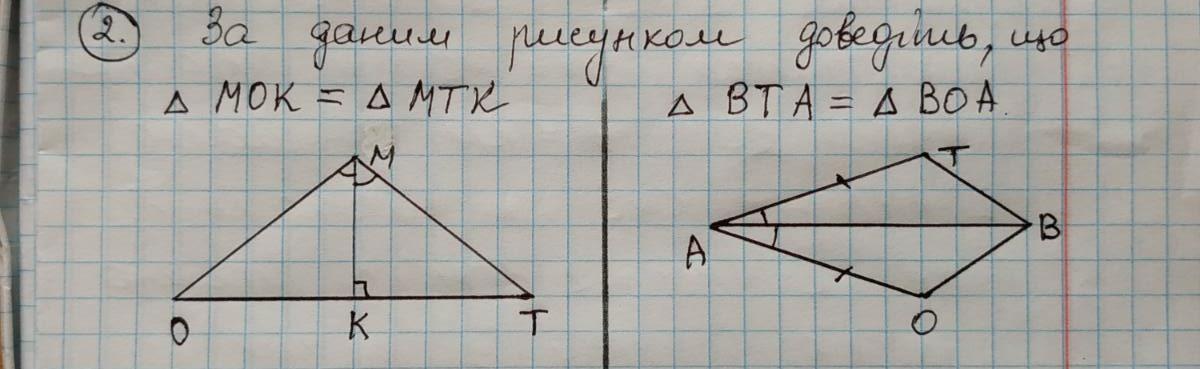 2. За даним рисунком доведіть, що
△ MOK = △ MTK
△ BTA = △ BOA.
M
O
K
T
T
A
B
O